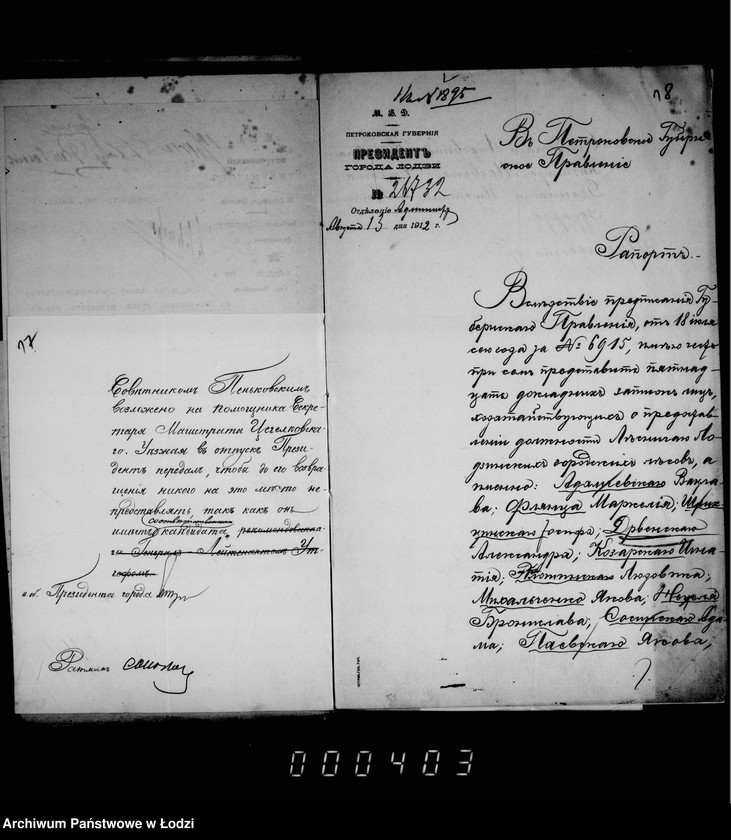 17.
Совѣтникомъ Пеньковскимъ
возложено на помощника Секре-
таря Магистрата Цегелковска-
го. Уѣзжая въ отпускъ Прези-
дентъ передалъ, чтобы до его возвра-
щенія никого на это мѣсто не
представлять, такъ какъ онъ
соотвѣтственнаго
имѣетъ кандидата, рекомендованна-
го Генералъ-Лейтенантомъ Ут-
гофомъ.
и. об. Президента города
Ратманъ
На № 1895
18
М. В. Д.
ПЕТРОКОВСКАЯ ГУБЕРНІЯ
ПРЕЗИДЕНТЪ
ГОРОДА ЛОДЗИ
№ 21732
Отдѣленіе Администр
Августа 13 дня 1912 г.
Въ Петроковское Губерн-
ское Правленіе
Рапортъ.
Вслѣдствіе предписанія Гу-
бернскаго Правленія, отъ 18 іюля
сего года за № 6915, имѣю честь
при семъ представить пятнад-
цать докладныхъ записокъ лицъ,
ходатайствующихъ о предостав-
леніи должности Лѣсничаго Ло-
дзинскихъ городскихъ лѣсовъ, а
именно: Адамевскаго Вацла-
ва; Флянца Маркелія;
Іосифа; Дрвенскаго
Александра; Козарскаго Игна-
тія; Людовика;
Михальченко Якова;
Бронислава; Сосинскаго Ада-
ма; Паевскаго Якова;
000403
Archiwum Państwowe w Łodzi